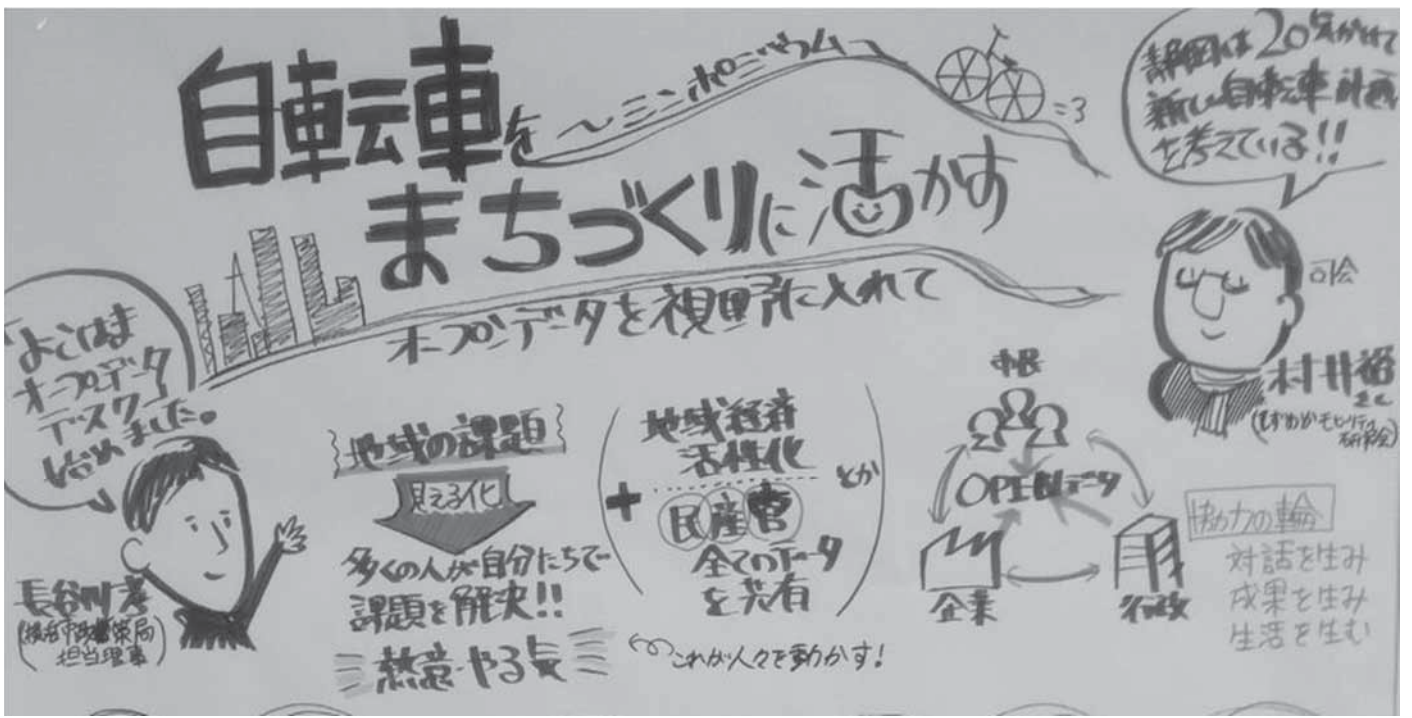 自転車を
〜シンポジウム〜
まちづくりに活かす
オープンデータを視野に入れて
静岡は20年かけて
新しい自転車計画
を考えている!!
司会
村井裕
さん
「よこはま
オープンデータ
デスク」
始めました。
長谷川孝
(横浜市政策局
担当理事)
地域の課題
見える化
多くの人が自分たちで
課題を解決!!
熱意・やる気
これが人々を動かす!
+
地域経済
活性化
とか
民産官
全てのデータ
を共有
市民
OPENデータ
企業
行政
協力の輪
対話を生み
成果を生み
生活を生む